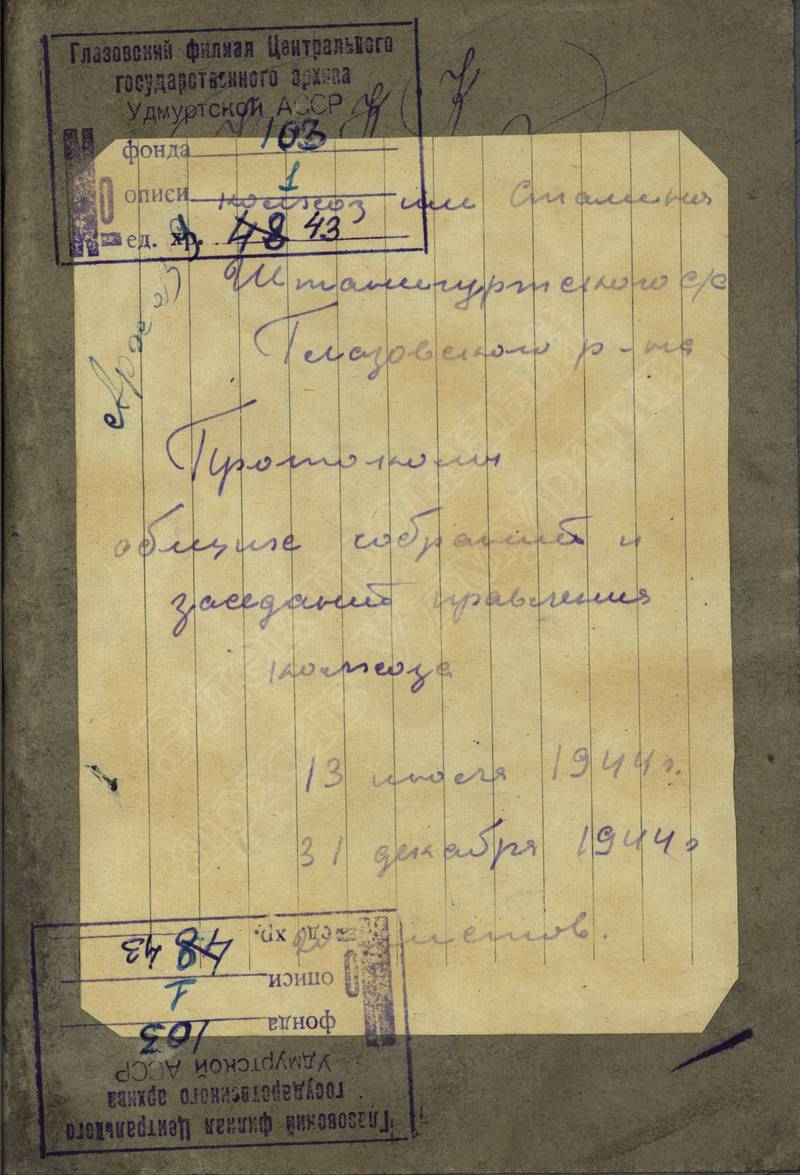 Глазовский филиал Центрального
государственного архива
Удмуртской АССР
№
фонда 103
описи 1
ед. хр. 48 43
колхоз им Сталина
Штанигуртского с/с
Глазовского р-на
Протоколы
общих собраний и
заседаний правления
колхоза
13 июля 1944 г.
31 декабря 1944 г
листов.
Глазовский филиал Центрального
государственного архива
Удмуртской АССР
№
фонда 103
описи 1
ед. хр. 48 43